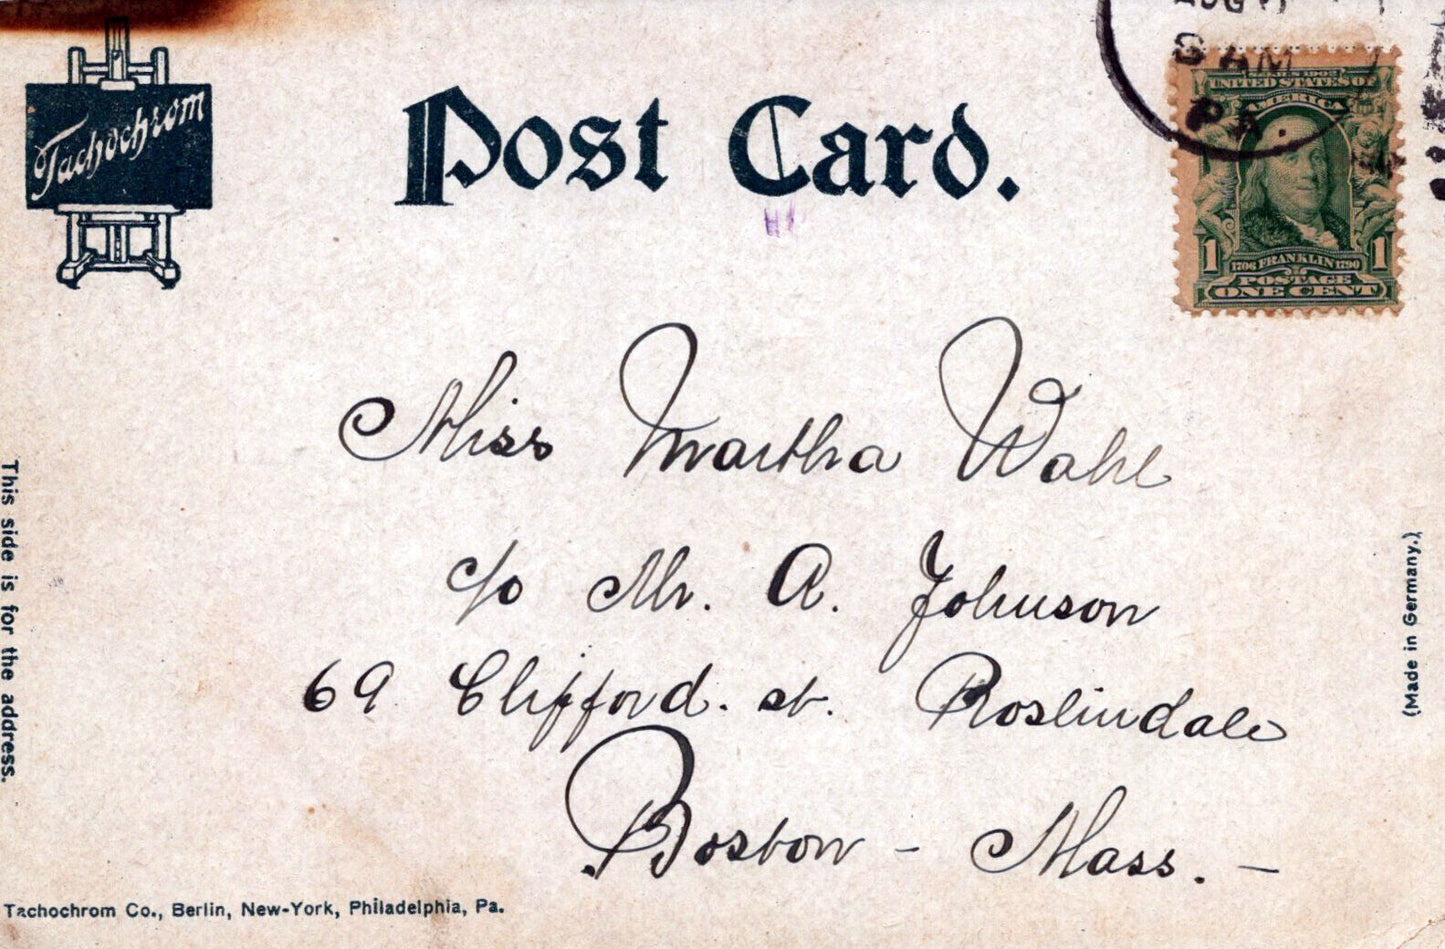 Tachochrom
Post Card.
8 AM
PA.
SERIES 1902
UNITED STATES OF
AMERICA
1 1
1706 FRANKLIN 1790
POSTAGE
ONE CENT
Miss Martha Wahl
c/o Mr. A. Johnson
69 Clifford. st. Roslindale
Boston - Mass. -
This side is for the address.
(Made in Germany.)
Tachochrom Co., Berlin, New-York, Philadelphia, Pa.